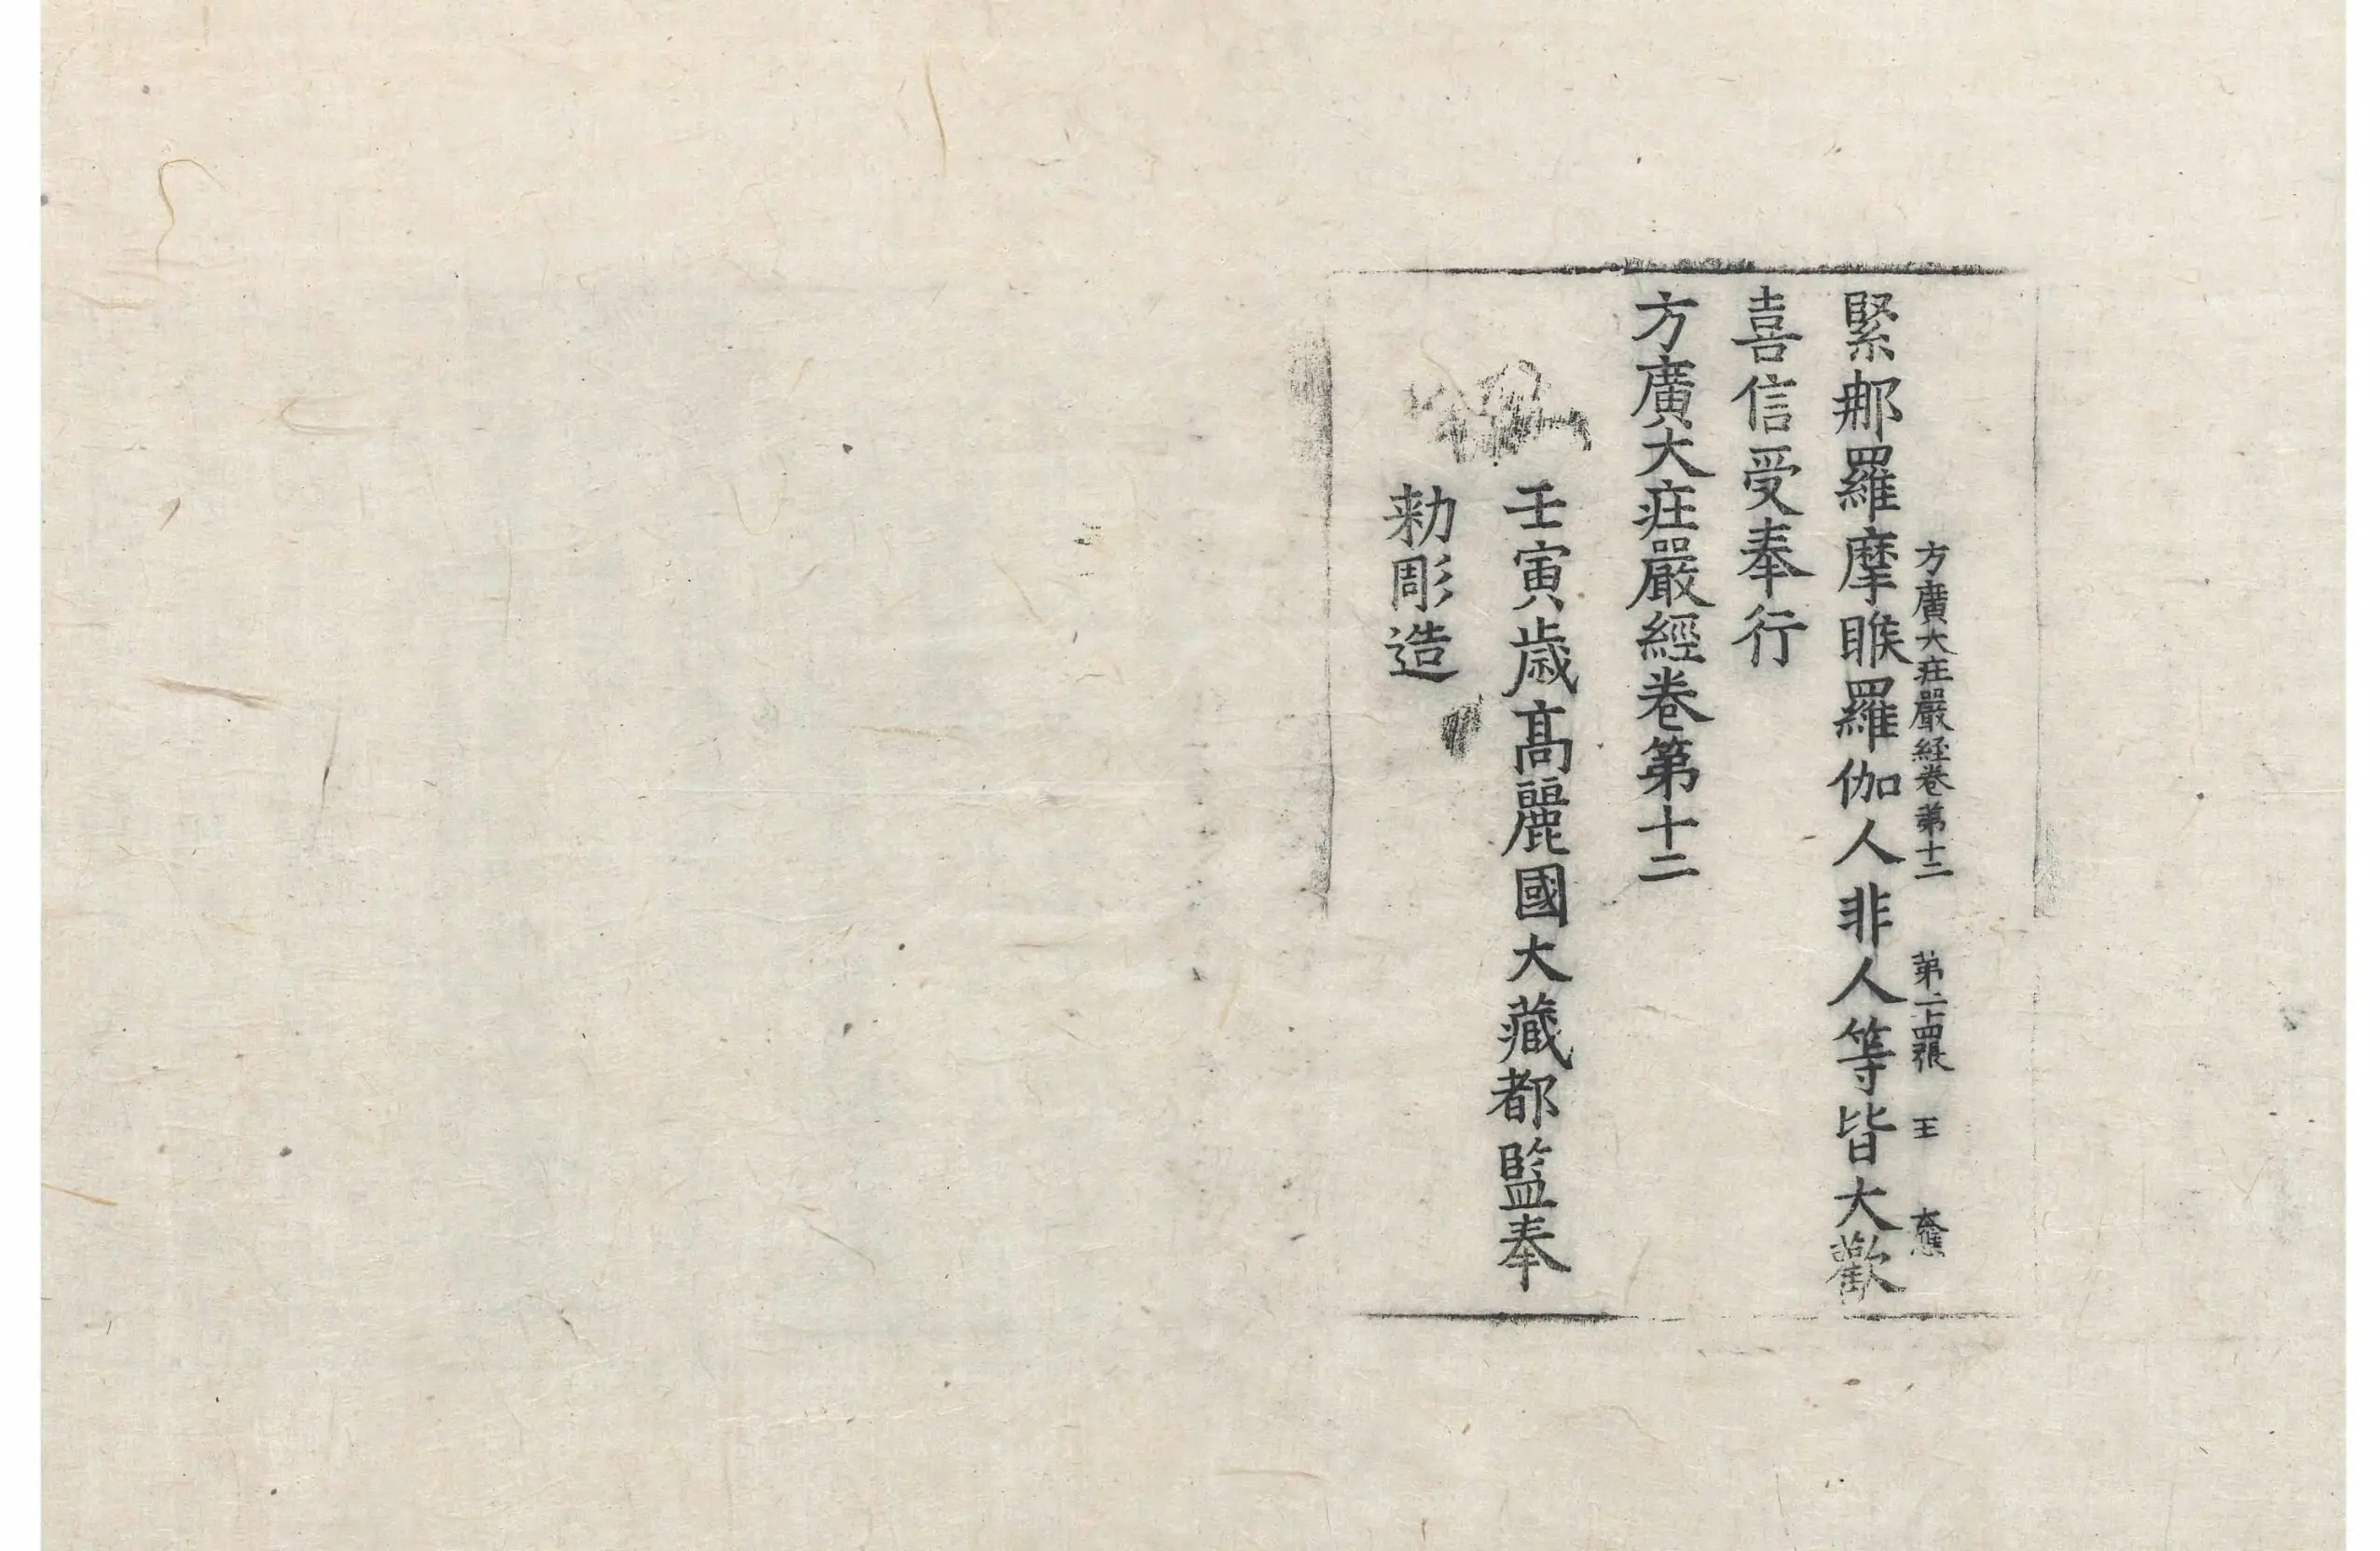 方廣大疰嚴經卷第十二 第二十四張 王
緊那羅摩睺羅伽人非人等皆大歡
喜信受奉行
方廣大疰嚴經卷第十二
壬寅歲高麗國大藏都監奉
勑彫造